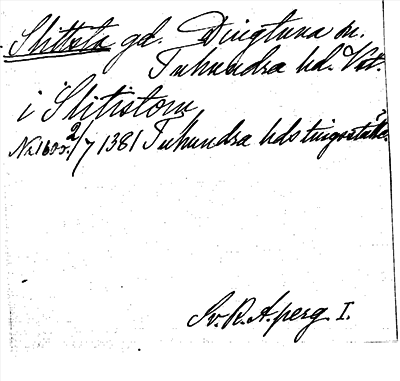 Slitsta gd. Dingtuna sn.
Tuhundra hd. Vst.
i Slitistom
No 1600. 2/7 1381 Tuhundra hds tingställe?
Sv. R. A. perg. I.